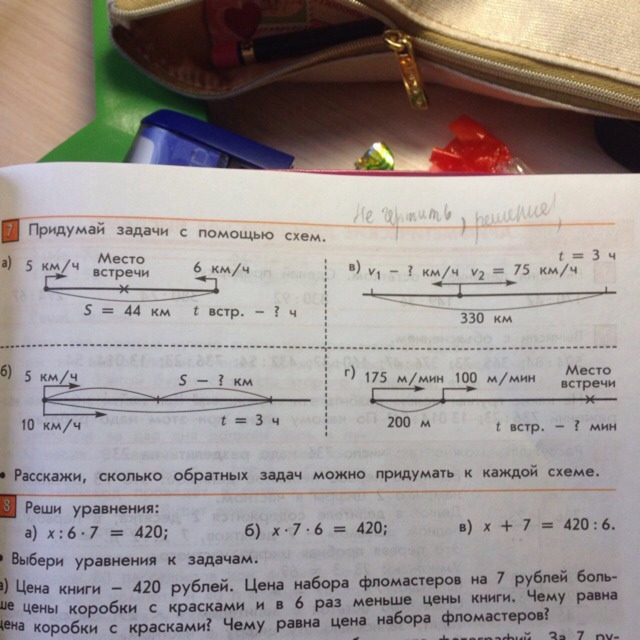 Не чертить, решение!
7 Придумай задачи с помощью схем.
а) 5 км/ч Место встречи 6 км/ч
S = 44 км t встр. – ? ч
в) v₁ – ? км/ч v₂ = 75 км/ч t = 3 ч
330 км
б) 5 км/ч S – ? км
10 км/ч t = 3 ч
г) 175 м/мин 100 м/мин Место встречи
200 м t встр. – ? мин
• Расскажи, сколько обратных задач можно придумать к каждой схеме.
8 Реши уравнения:
а) x : 6 · 7 = 420; б) x · 7 · 6 = 420; в) x + 7 = 420 : 6.
• Выбери уравнения к задачам.
а) Цена книги – 420 рублей. Цена набора фломастеров на 7 рублей боль-
ше цены коробки с красками и в 6 раз меньше цены книги. Чему равна
цена коробки с красками? Чему равна цена набора фломастеров?
За 7 ру-